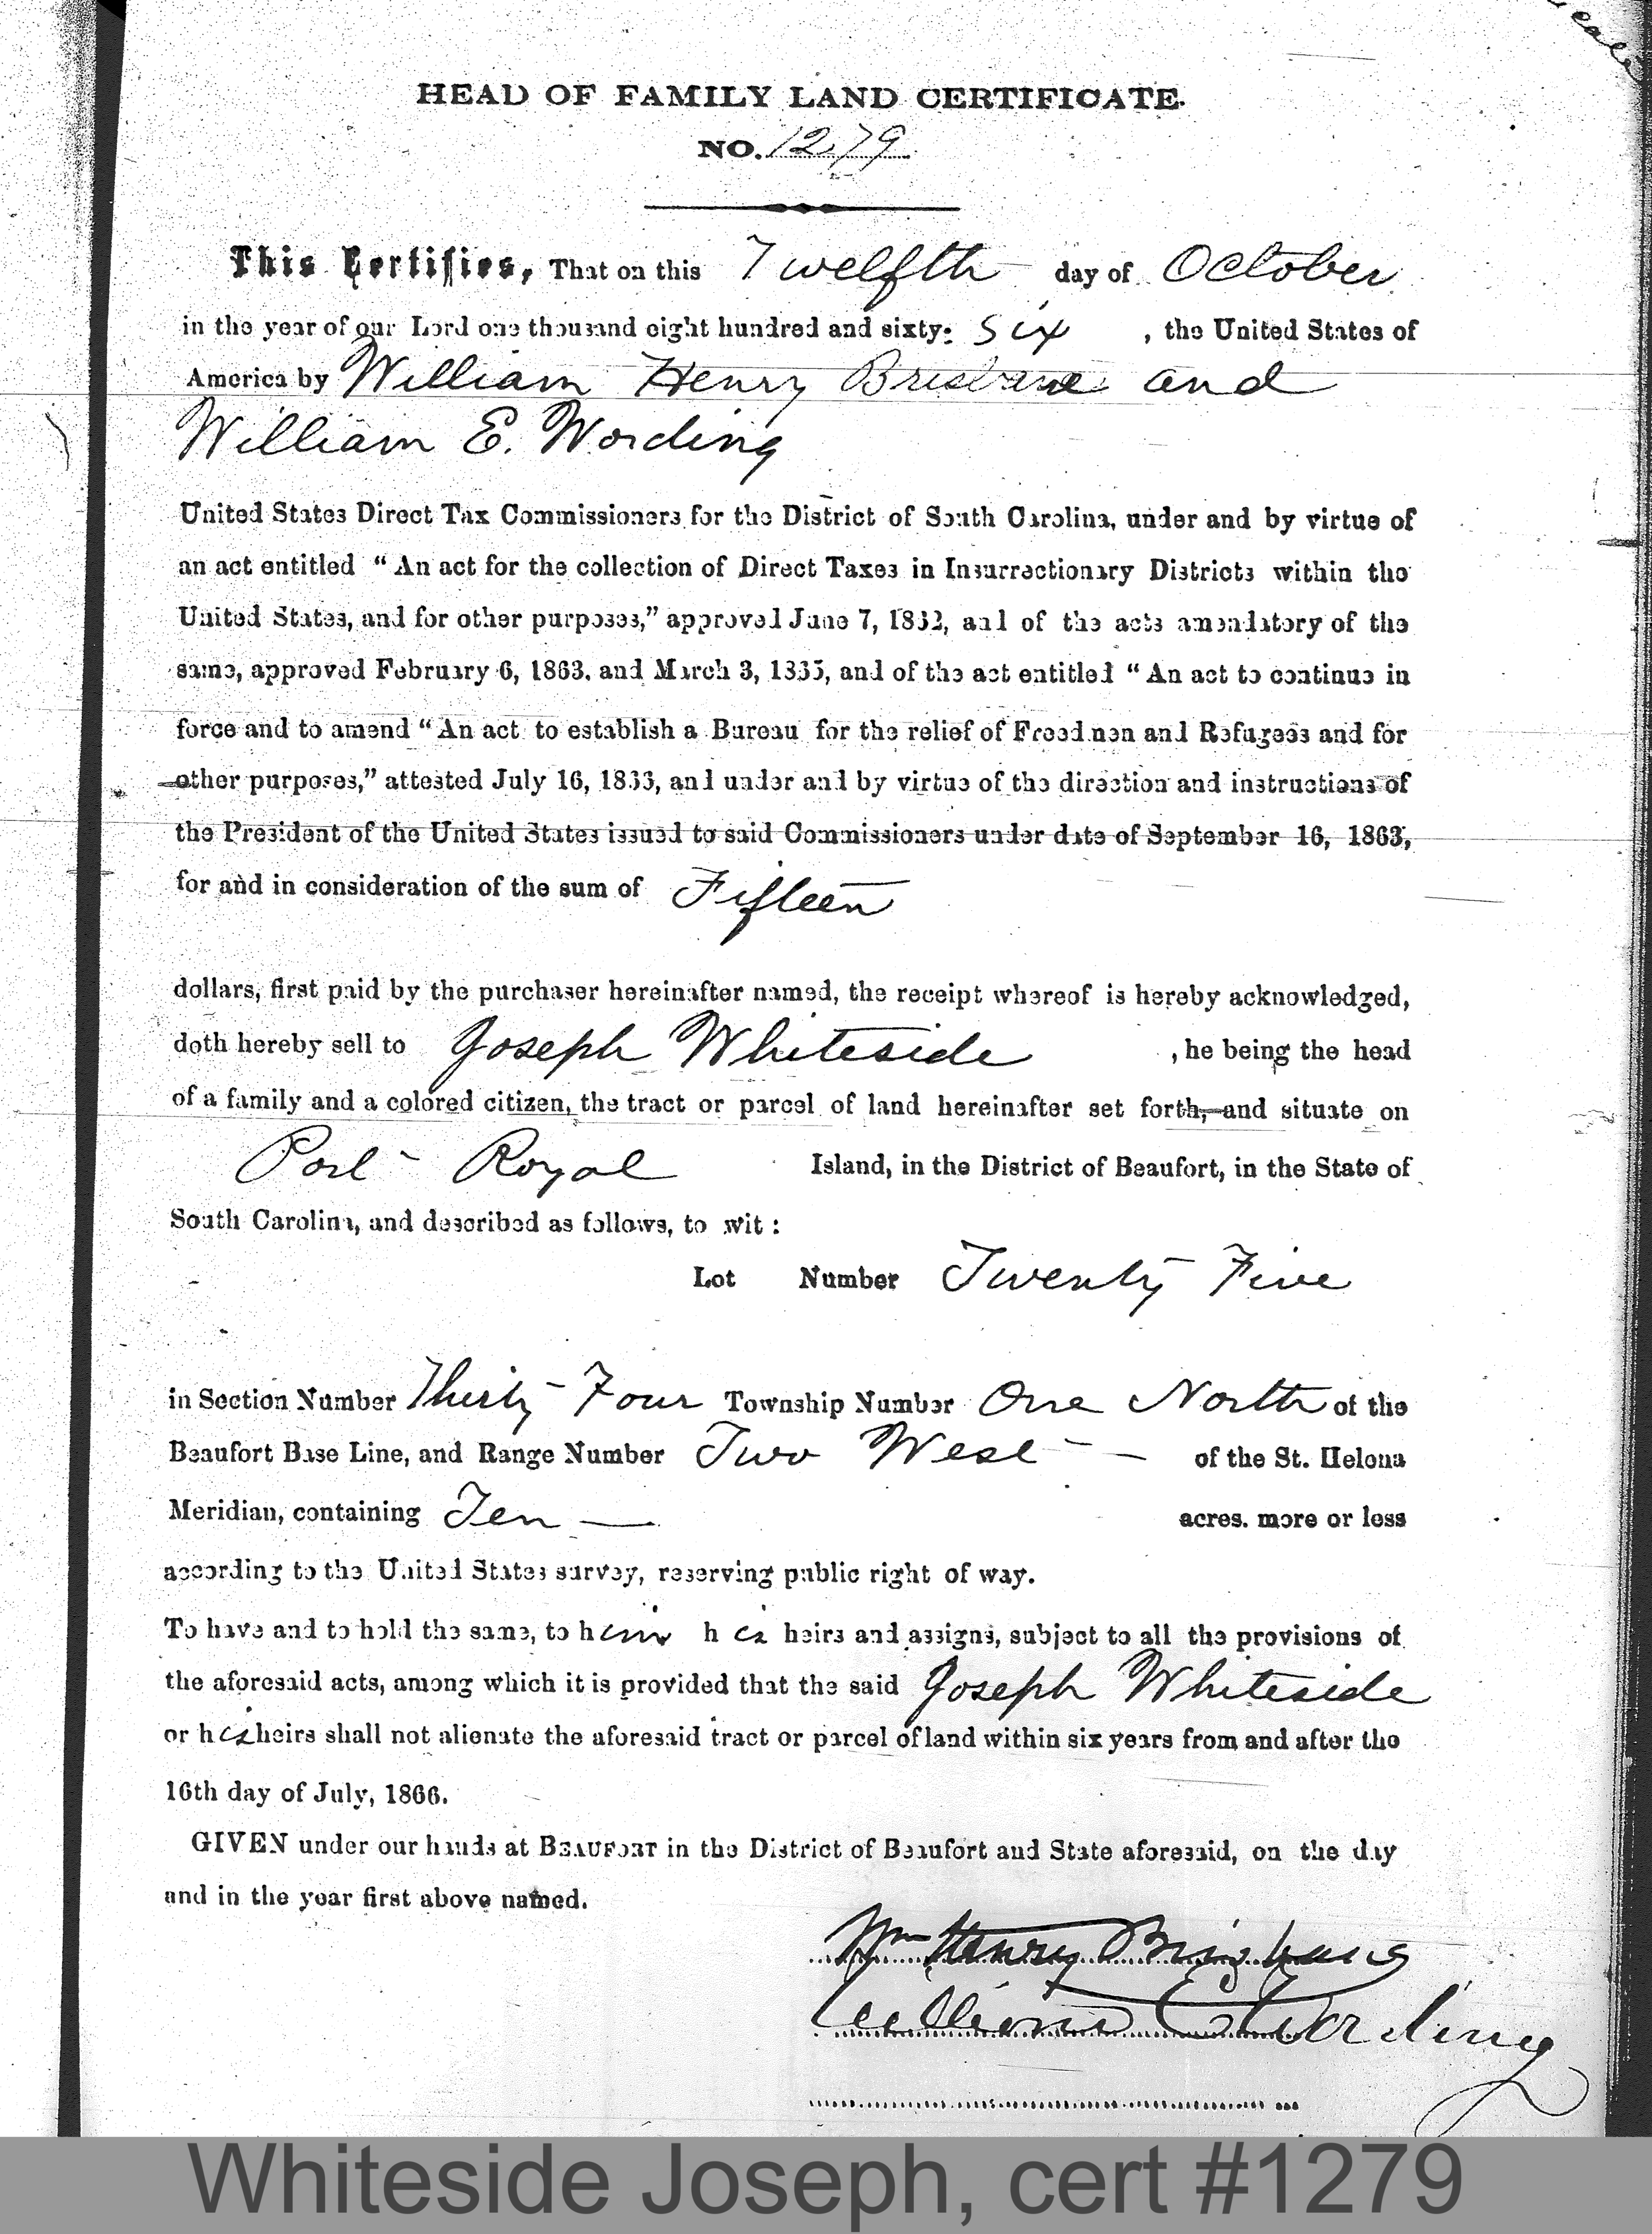 HEAD OF FAMILY LAND CERTIFICATE.
NO. 1279
This Certifies, That on this Twelfth day of October
in the year of our Lord one thousand eight hundred and sixty- Six , the United States of
America by William Henry Brisbane and
William E. Wording
United States Direct Tax Commissioners for the District of South Carolina, under and by virtue of
an act entitled “An act for the collection of Direct Taxes in Insurrectionary Districts within the
United States, and for other purposes,” approved June 7, 1862, and of the acts amendatory of the
same, approved February 6, 1863, and March 3, 1865, and of the act entitled “An act to continue in
force and to amend “An act to establish a Bureau for the relief of Freedmen and Refugees and for
other purposes,” attested July 16, 1866, and under and by virtue of the direction and instructions of
the President of the United States issued to said Commissioners under date of September 16, 1863,
for and in consideration of the sum of Fifteen
dollars, first paid by the purchaser hereinafter named, the receipt whereof is hereby acknowledged,
doth hereby sell to Joseph Whiteside , he being the head
of a family and a colored citizen, the tract or parcel of land hereinafter set forth, and situate on
Port Royal Island, in the District of Beaufort, in the State of
South Carolina, and described as follows, to wit:
Lot Number Twenty Five
in Section Number Thirty Four Township Number One North of the
Beaufort Base Line, and Range Number Two West of the St. Helena
Meridian, containing Ten acres. more or less
according to the United States survey, reserving public right of way.
To have and to hold the same, to him his heirs and assigns, subject to all the provisions of
the aforesaid acts, among which it is provided that the said Joseph Whiteside
or his heirs shall not alienate the aforesaid tract or parcel of land within six years from and after the
16th day of July, 1866.
GIVEN under our hands at BEAUFORT in the District of Beaufort and State aforesaid, on the day
and in the year first above named.
Wm Henry Brisbane
William E Wording
Whiteside Joseph, cert #1279